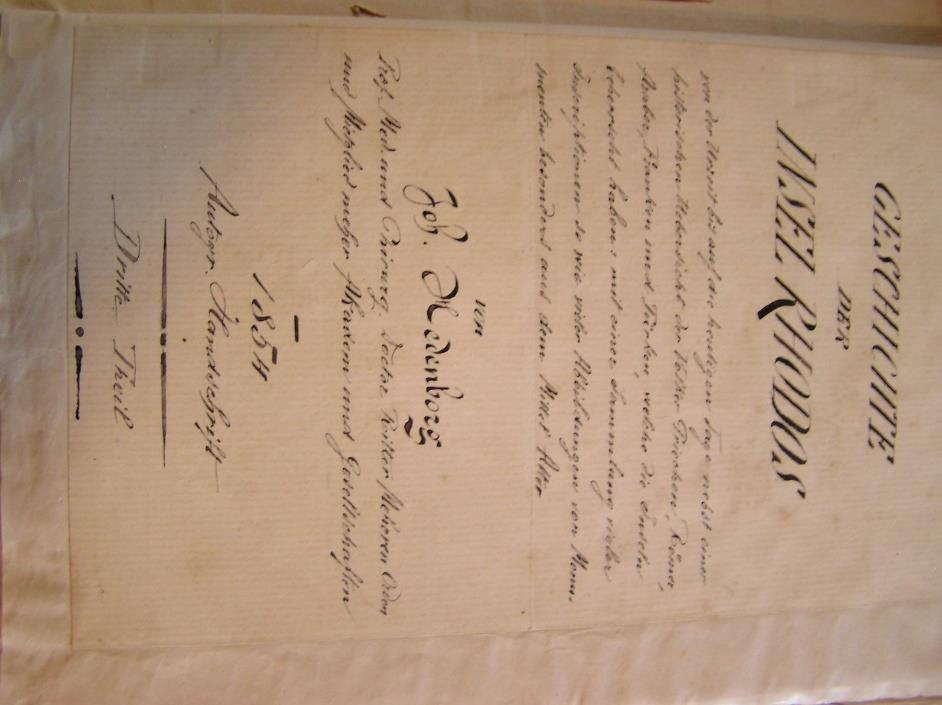 GESCHICHTE
DER
INSEL RHODOS
von der Urzeit bis auf die heutigen Tage nebst einer
historischen Uebersicht der Völker Griechen, Römer,
Araber, Franken und Türken, welche die Inseln
beherrscht haben mit einer Sammlung vieler
Inscriptionen so wie vieler Abbildungen von Monu
menten besonders aus dem Mittel Alter
von
Joh. Hedenborg
Prof. Med. und Chirurg. Doctor Ritter mehreren Orden
und Mitglied mehrer Akadem und Gesellschaften
1854
Autogr. Handschrift
Dritter Theil